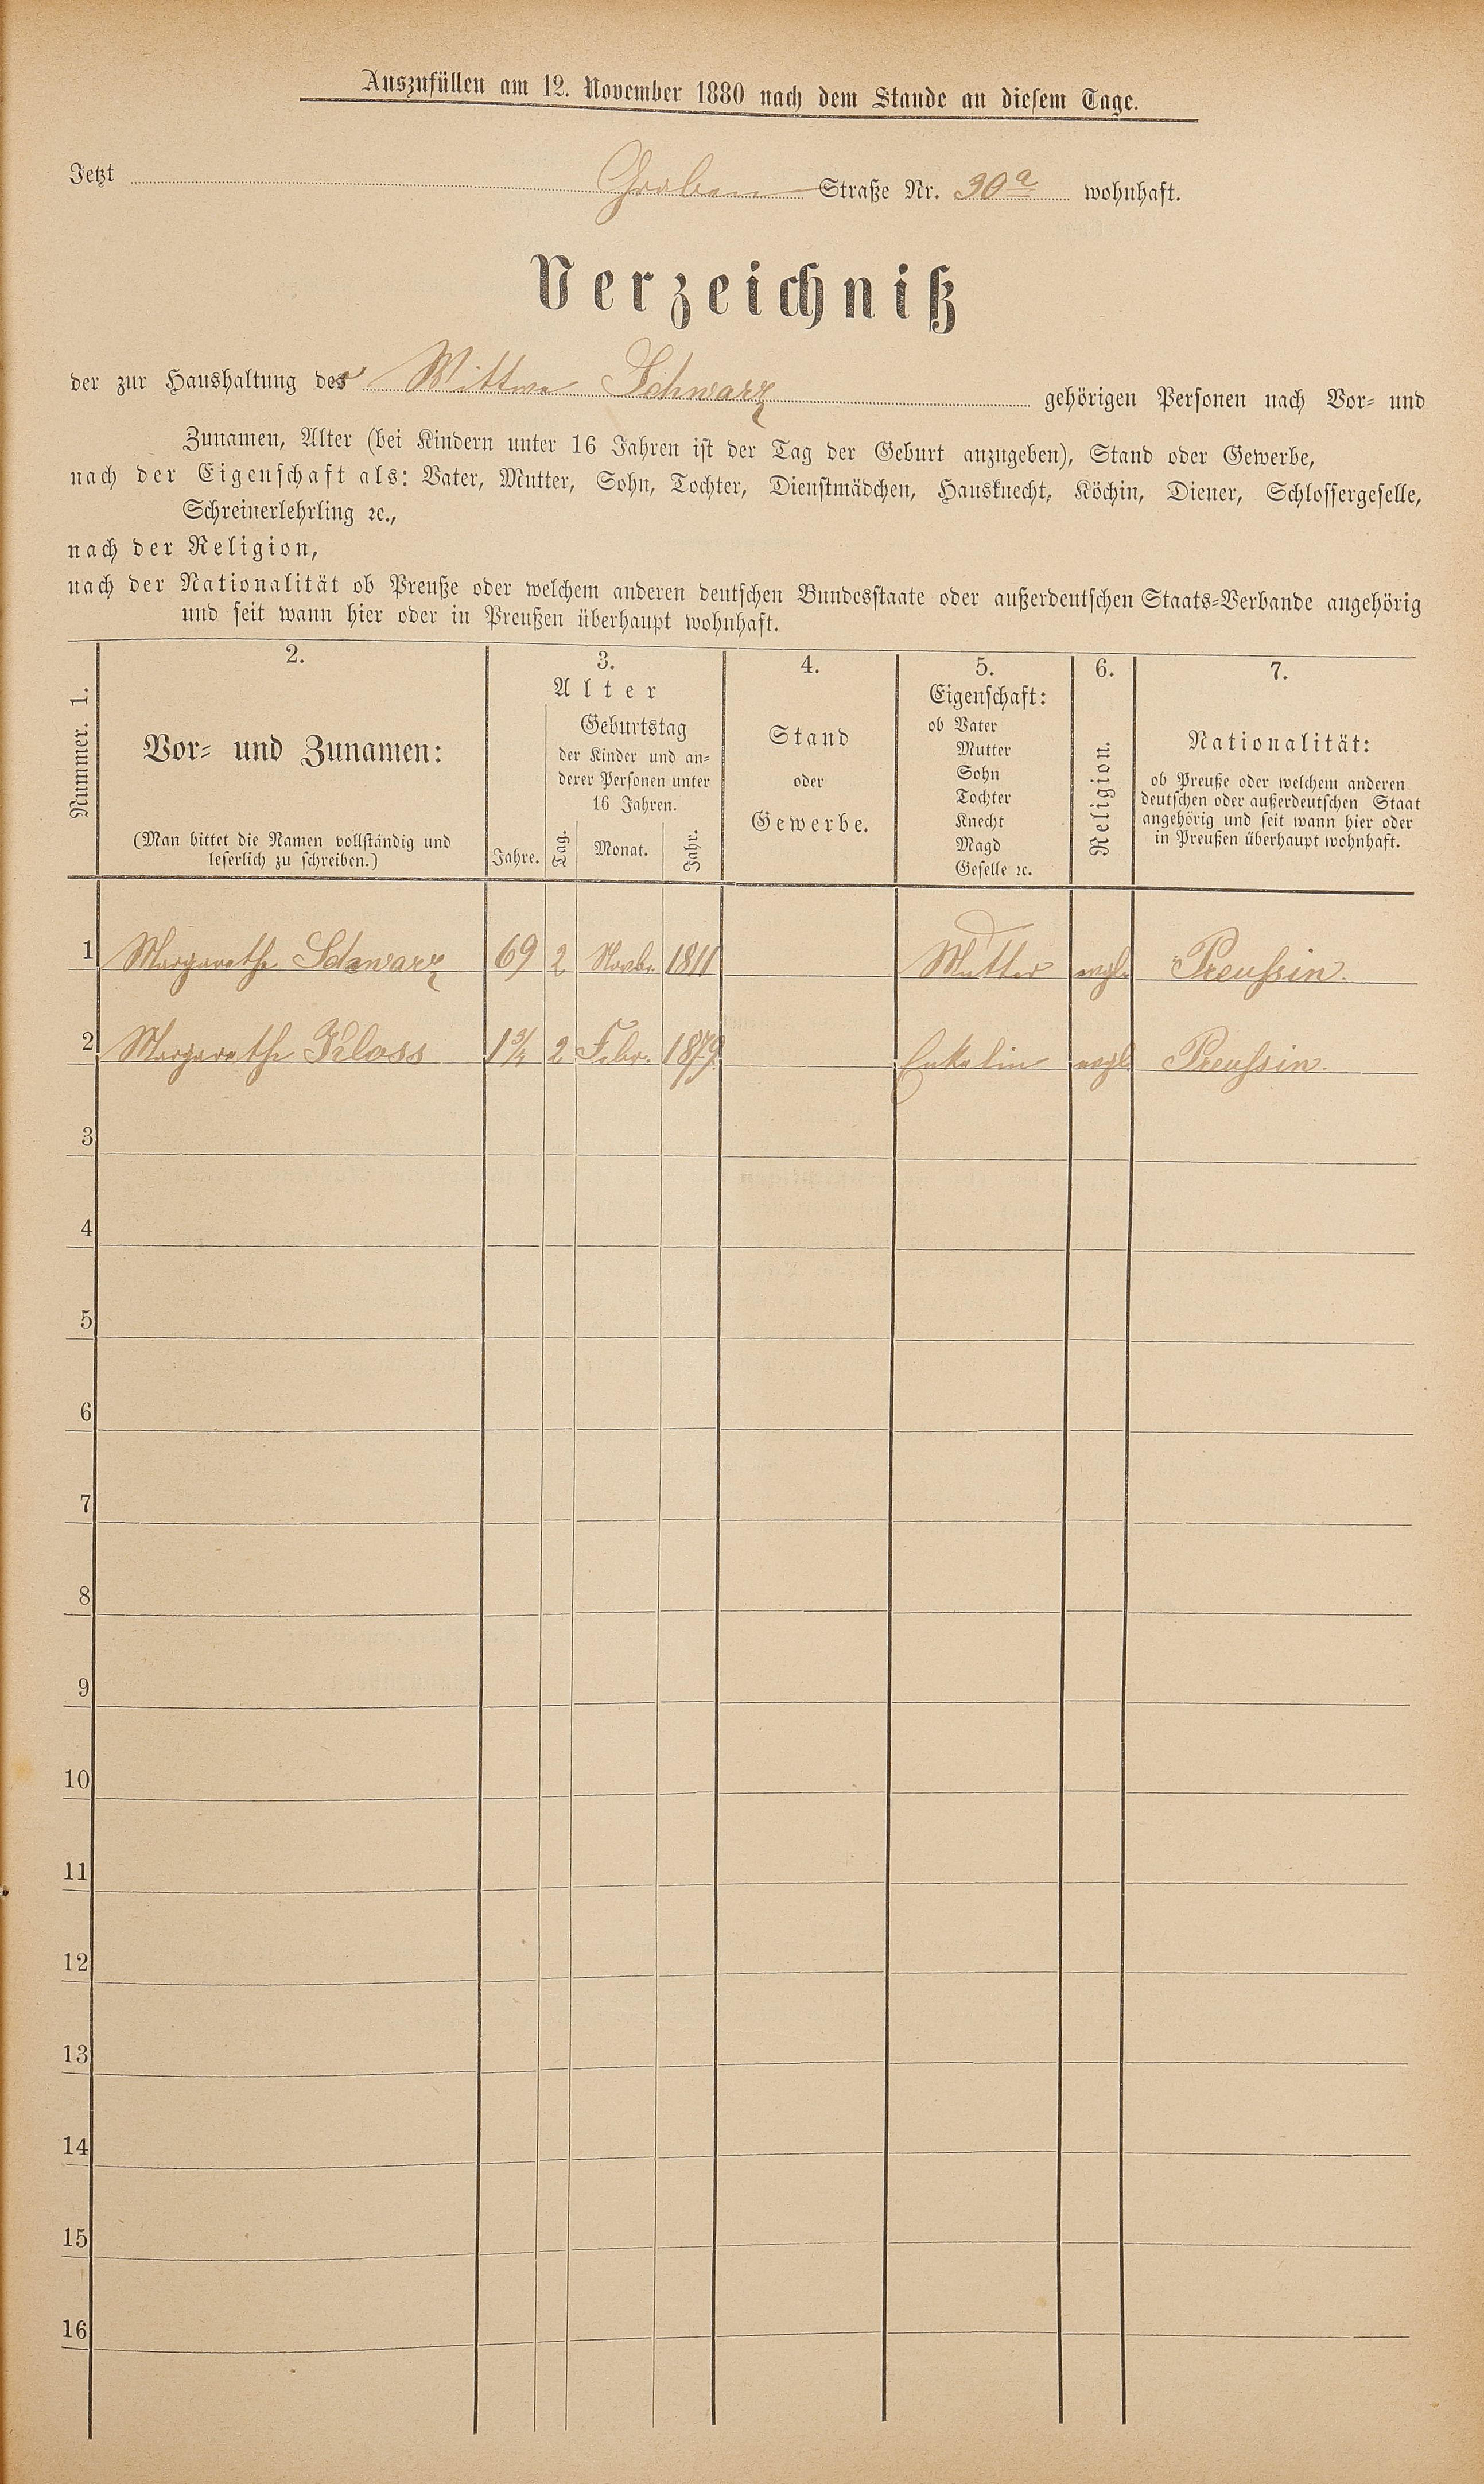 Auszufüllen am 12. November 1880 nach dem Stande an diesem Tage.
Jetzt Graben Straße Nr. 30a wohnhaft.
Verzeichniß
der zur Haushaltung der Wittwe Schwarz gehörigen Personen nach Vor- und
Zunamen, Alter (bei Kindern unter 16 Jahren ist der Tag der Geburt anzugeben), Stand oder Gewerbe,
nach der Eigenschaft als: Vater, Mutter, Sohn, Tochter, Dienstmädchen, Hausknecht, Köchin, Diener, Schlossergeselle,
Schreinerlehrling ꝛc.,
nach der Religion,
nach der Nationalität ob Preuße oder welchem anderen deutschen Bundesstaate oder außerdeutschen Staats-Verbande angehörig
und seit wann hier oder in Preußen überhaupt wohnhaft.
Nummer. 1.
2.
Vor- und Zunamen:
(Man bittet die Namen vollständig und
leserlich zu schreiben.)
3.
Alter
Jahre.
Geburtstag
der Kinder und an-
derer Personen unter
16 Jahren.
Tag. Monat. Jahr.
4.
Stand
oder
Gewerbe.
5.
Eigenschaft:
ob Vater
Mutter
Sohn
Tochter
Knecht
Magd
Geselle ꝛc.
6.
Religion.
7.
Nationalität:
ob Preuße oder welchem anderen
deutschen oder außerdeutschen Staat
angehörig und seit wann hier oder
in Preußen überhaupt wohnhaft.
1 Margarethe Schwarz 69 2 Novbr. 1811 Mutter evgl. Preußin.
2 Margarethe Kloss 1 3/4 2 Febr. 1879 Enkelin evgl. Preußin.
3
4
5
6
7
8
9
10
11
12
13
14
15
16